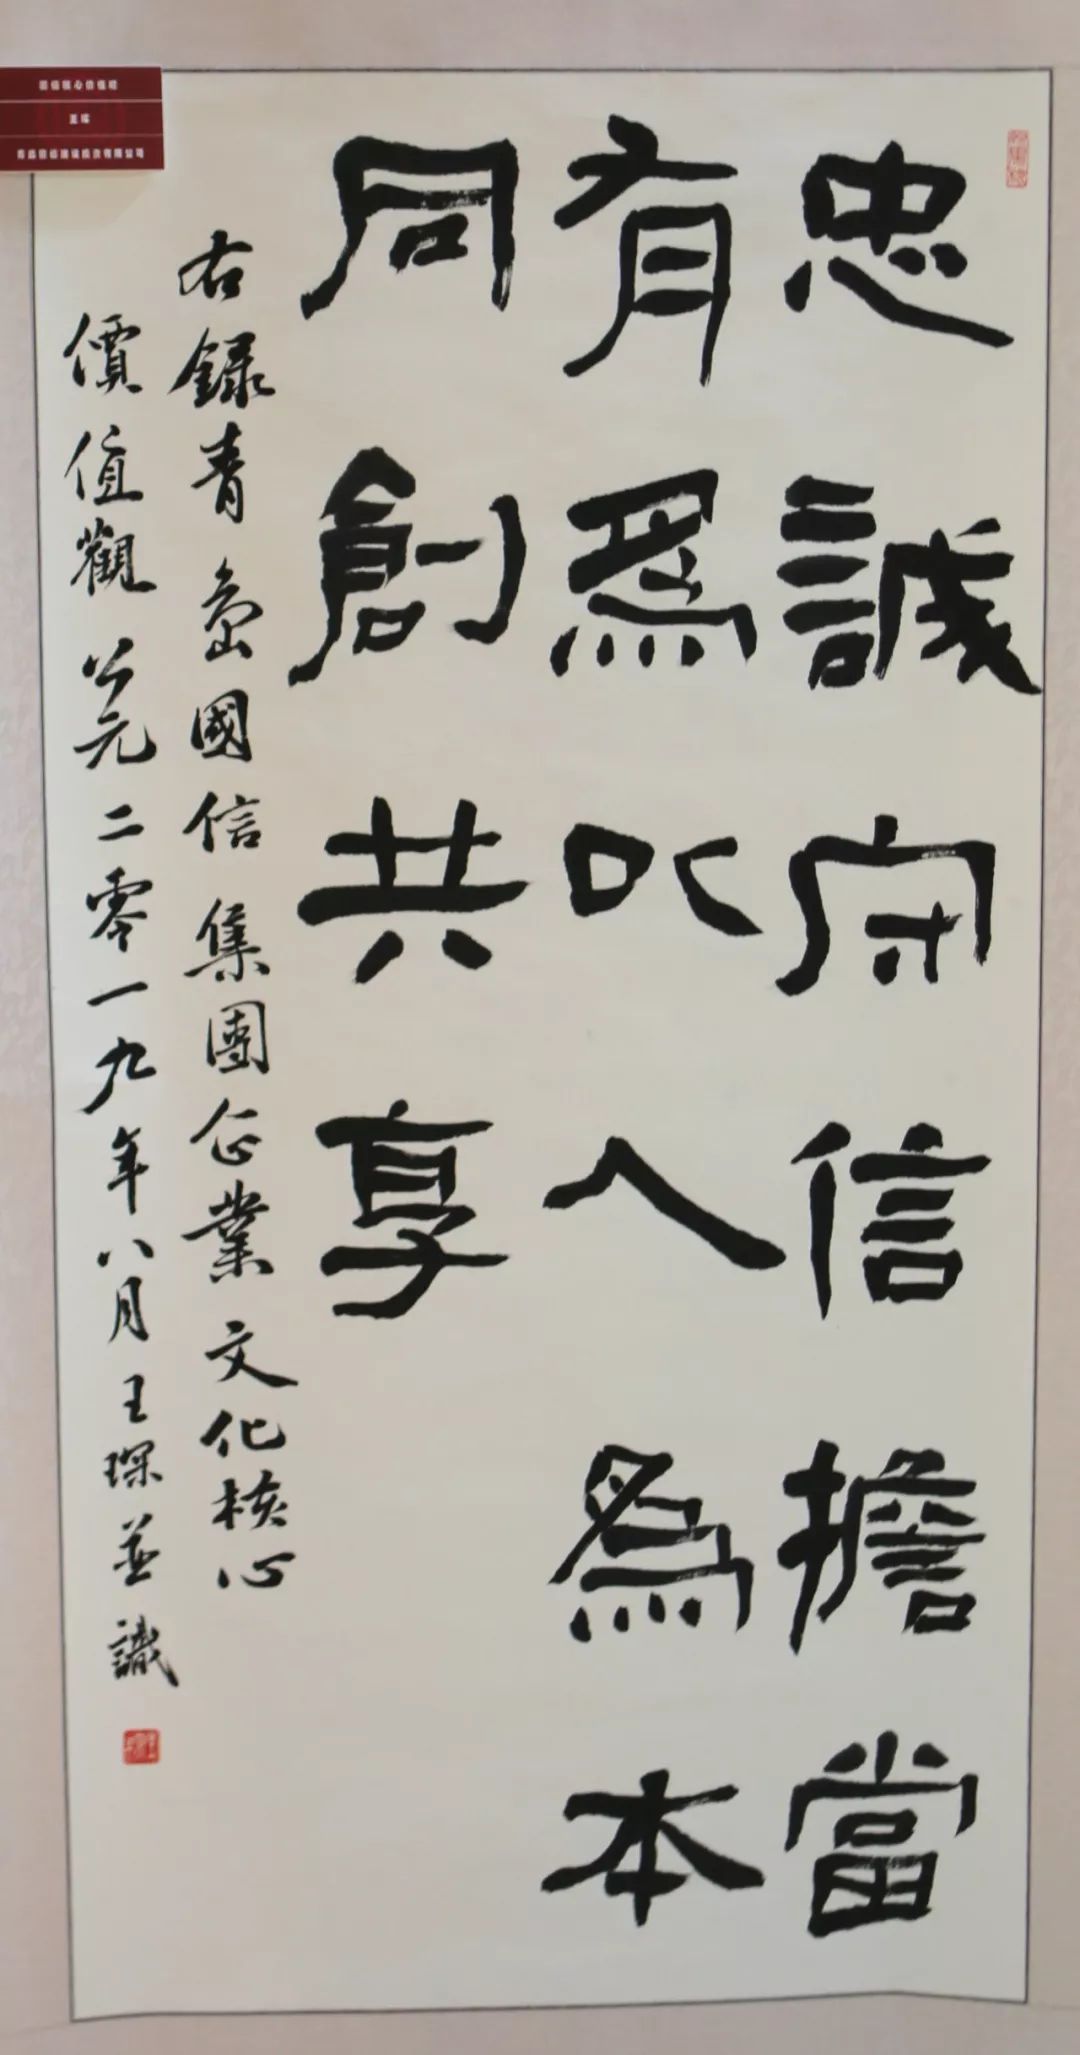 忠誠守信擔當
有爲以人爲本
同創共享
右録青島國信集團企業文化核心
價值觀 公元二零一九年八月王琛並識